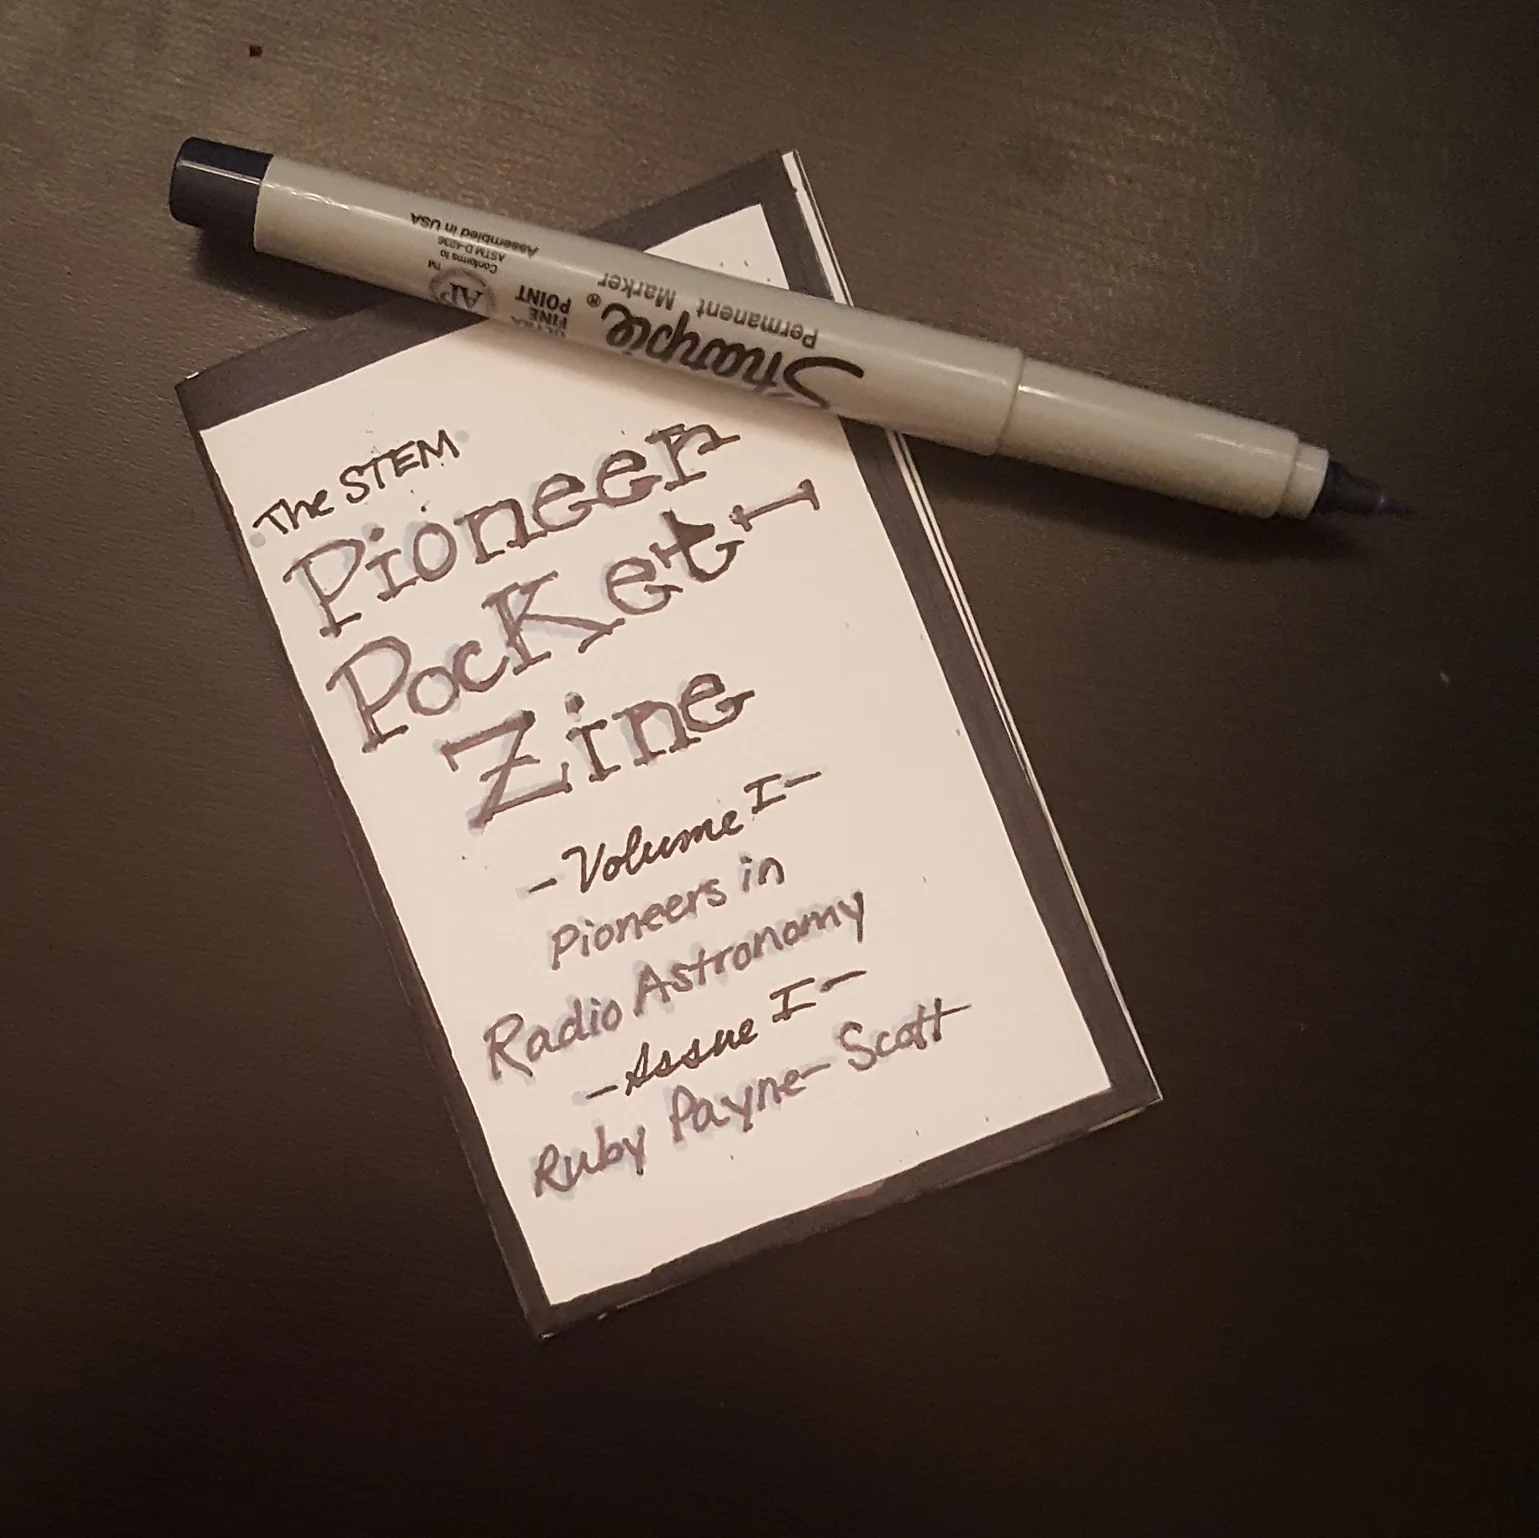 The STEM
Pioneer
Pocket
Zine
- Volume I -
Pioneers in
Radio Astronomy
- Issue I -
Ruby Payne-Scott
Sharpie®
Permanent Marker
ULTRA
FINE
POINT
AP
TM
Conforms to
ASTM D-4236
Assembled in USA